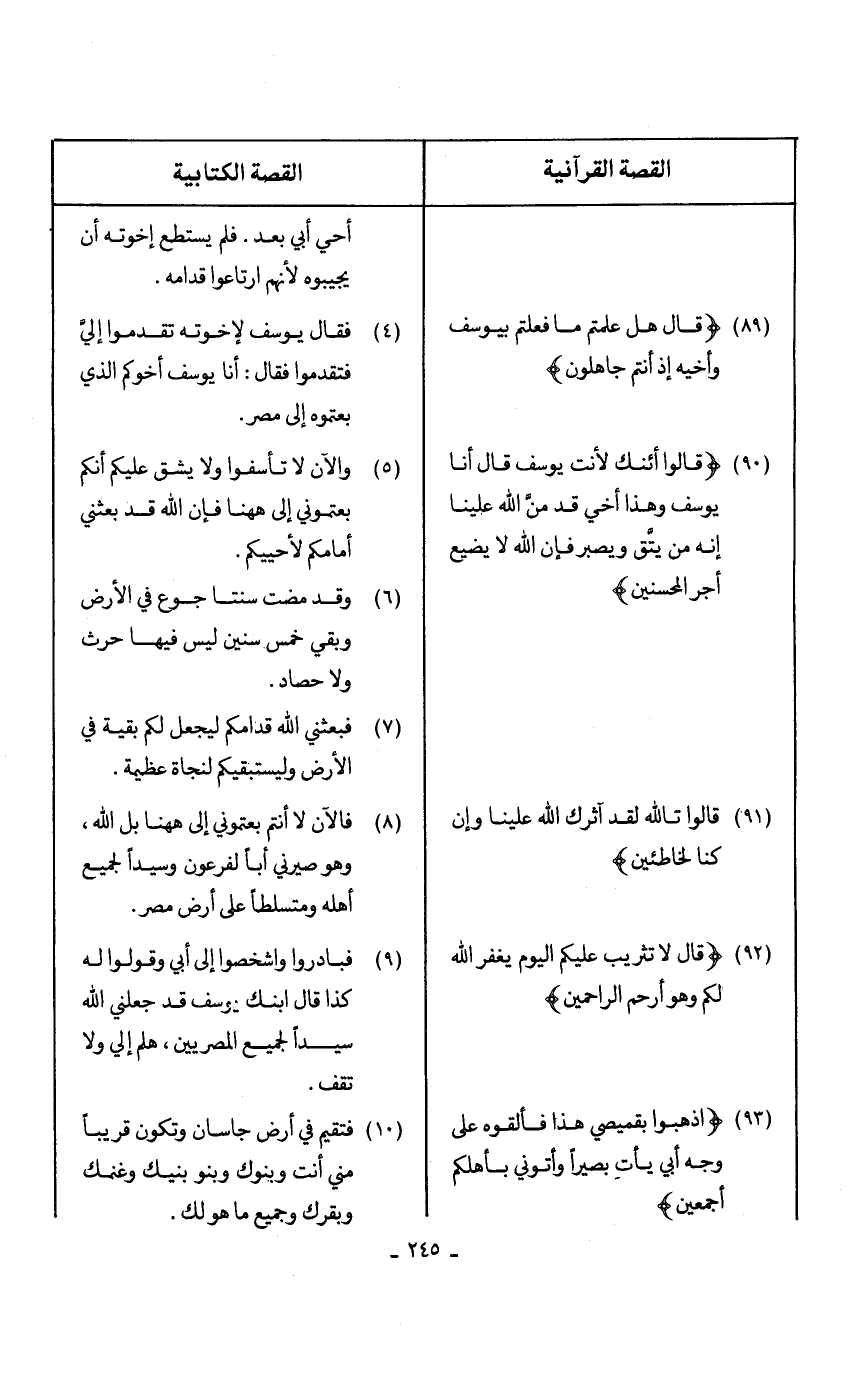 القصة القرآنية
(٨٩) ﴿قال هل علمتم ما فعلتم بيوسف
وأخيه إذ أنتم جاهلون﴾
(٩٠) ﴿قالوا أئنك لأنت يوسف قال أنا
يوسف وهذا أخي قد منَّ الله علينا
إنه من يتَّق ويصبر فإن الله لا يضيع
أجر المحسنين﴾
(٩١) قالوا تالله لقد آثرك الله علينا وإن
كنا لخاطئين﴾
(٩٢) ﴿قال لا تثريب عليكم اليوم يغفر الله
لكم وهو أرحم الراحمين﴾
(٩٣) ﴿اذهبوا بقميصي هذا فألقوه على
وجه أبي يأتِ بصيراً وأتوني بأهلكم
أجمعين﴾
القصة الكتابية
أحي أبي بعد . فلم يستطع إخوته أن
يجيبوه لأنهم ارتاعوا قدامه .
(٤) فقال يوسف لإخوته تقدموا إليَّ
فتقدموا فقال : أنا يوسف أخوكم الذي
بعتموه إلى مصر .
(٥) والآن لا تأسفوا ولا يشق عليكم أنكم
بعتموني إلى ههنا فإن الله قد بعثني
أمامكم لأحييكم .
(٦) وقد مضت سنتا جوع في الأرض
وبقي خمس سنين ليس فيها حرث
ولا حصاد .
(٧) فبعثني الله قدامكم ليجعل لكم بقية في
الأرض وليستبقيكم لنجاة عظيمة .
(٨) فالآن لا أنتم بعتموني إلى ههنا بل الله ،
وهو صيرني أباً لفرعون وسيداً لجميع
أهله ومتسلطاً على أرض مصر .
(٩) فبادروا واشخصوا إلى أبي وقولوا له
كذا قال ابنك يوسف قد جعلني الله
سيداً لجميع المصريين ، هلم إلي ولا
تقف .
(١٠) فتقيم في أرض جاسان وتكون قريباً
مني أنت وبنوك وبنو بنيك وغنمك
وبقرك وجميع ما هو لك .
- ٢٤٥ -